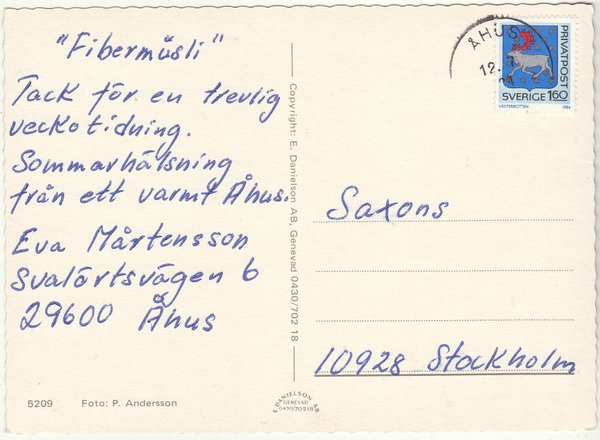 "Fibermüsli"
Tack för en trevlig
veckotidning.
Sommarhälsning
från ett varmt Åhus.
Eva Mårtensson
Svalörtsvägen 6
29600 Åhus
5209 Foto: P. Andersson
Copyright: E. Danielson AB, Genevad 0430/702 18
E. DANIELSON AB
GENEVAD
0430/70218
ÅHUS
12. 7
PRIVATPOST
SVERIGE 160
VÄSTERBOTTEN 1984
Saxons
10928 Stockholm